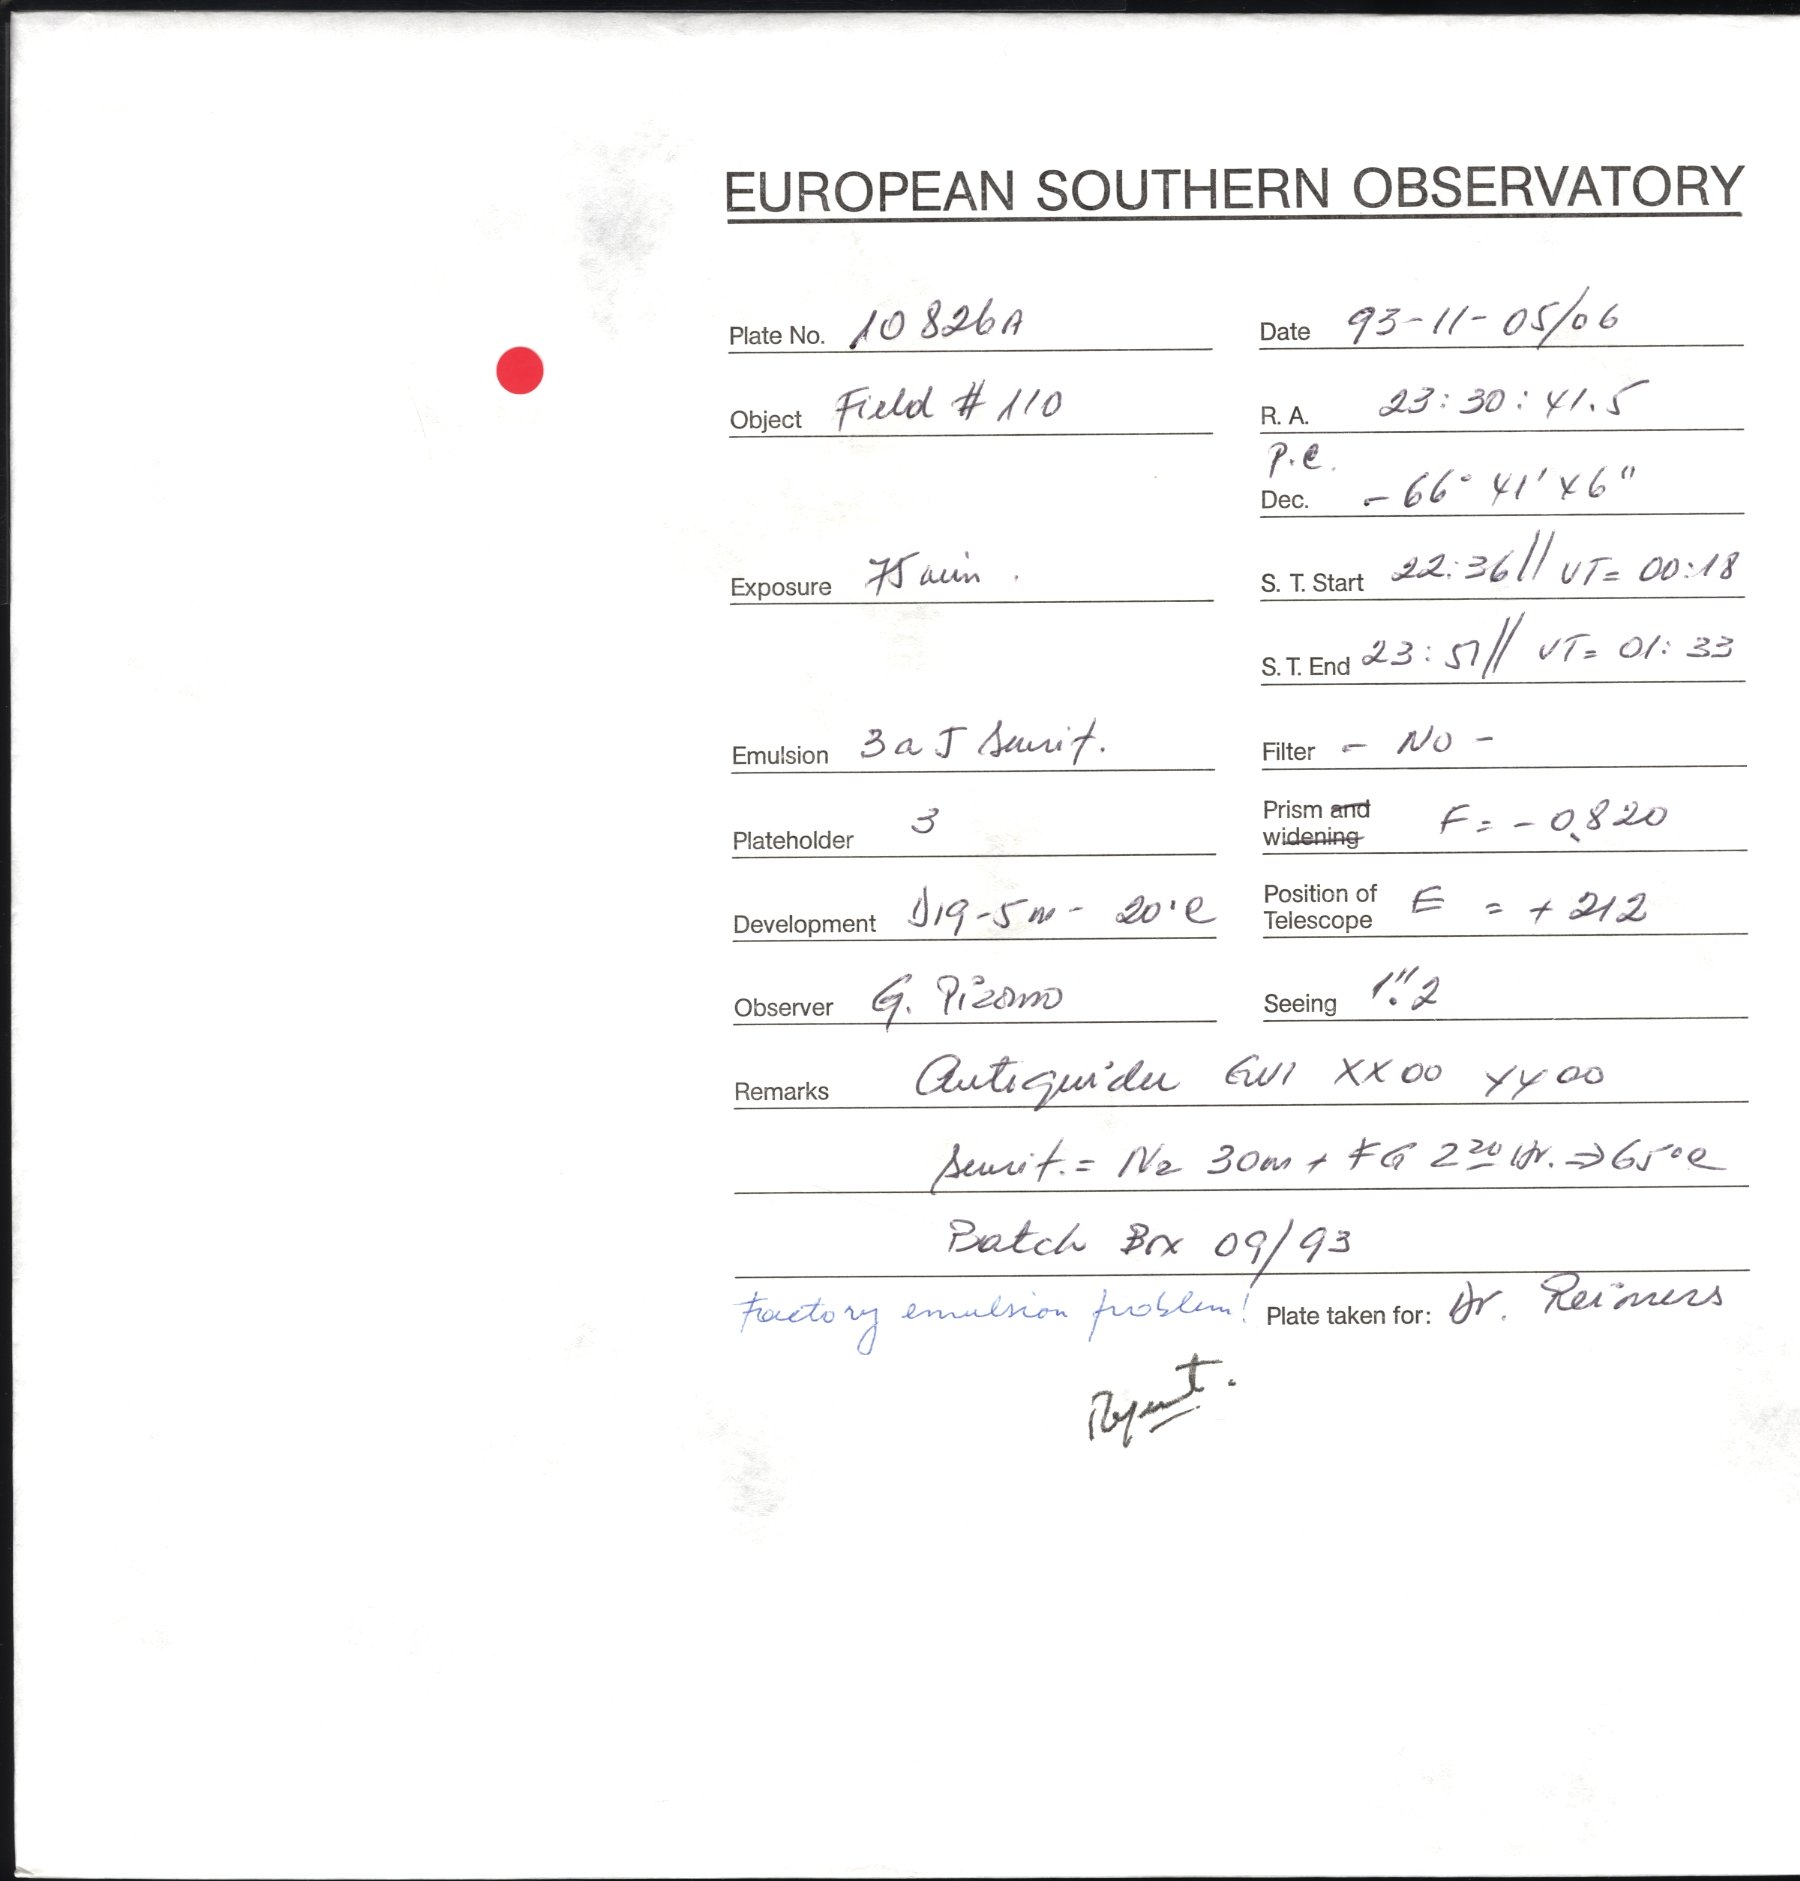 EUROPEAN SOUTHERN OBSERVATORY
Plate No. 10826A
Date 93-11-05/06
Object Field # 110
R. A. 23:30:41.5
P.C.
Dec. - 66° 41' 46"
Exposure 75 min.
S. T. Start 22:36 // UT= 00:18
S. T. End 23:51 // UT= 01:33
Emulsion 3aJ Sensit.
Filter - No -
Plateholder 3
Prism and widening F = - 0.820
Development D19-5m- 20°C
Position of Telescope E = + 212
Observer G. Pizarro
Seeing 1".2
Remarks Autoguider GW1 XX00 YY00
Sensit. = N2 30m + FG 2 20 Hr. ⇒ 65°C
Batch Box 09/93
Factory emulsion problem!
Plate taken for: Dr. Reimers
Repeat.